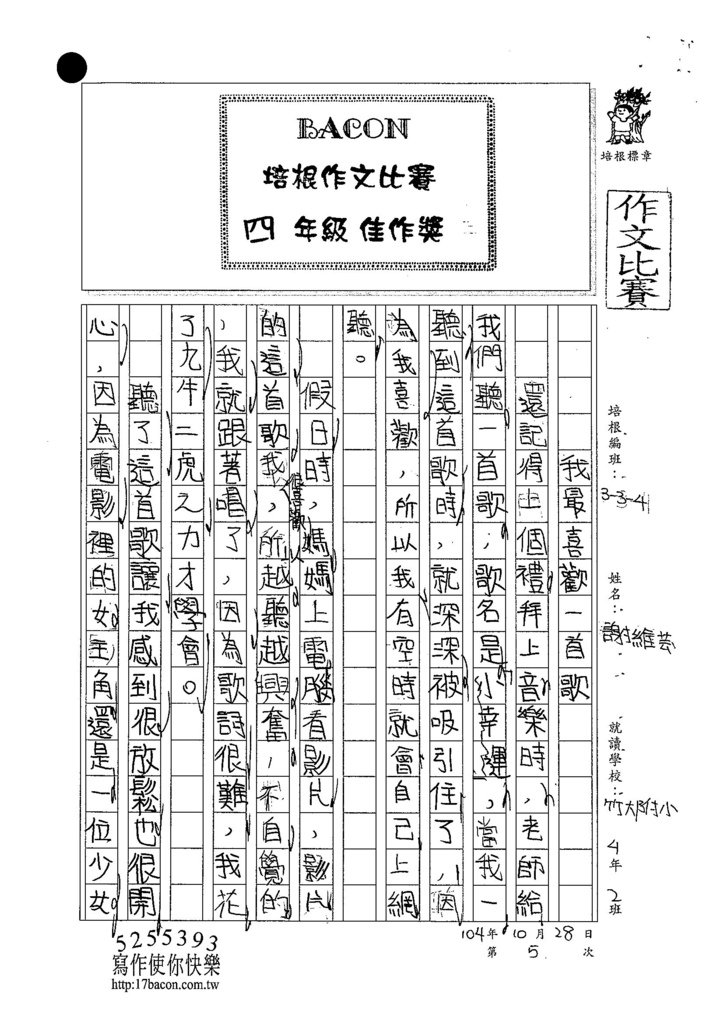 BACON
培根作文比賽
四 年級 佳作獎
培根標章
作文比賽
培根編班：3-3-4
姓名：謝維芸
就讀學校：竹大附小 4年2班
104年10月28日
第5次
我最喜歡一首歌
還記得上個禮拜上音樂時，老師給
我們聽一首歌，歌名是小幸運，當我一
聽到這首歌時，就深深被吸引住了，因
為我喜歡，所以我有空時就會自己上網
聽。
假日時，媽媽上電腦看影片，影片
的這首歌我很喜歡，所以越聽越興奮，不自覺的
，我就跟著唱了，因為歌詞很難，我花
了九牛二虎之力才學會。
聽了這首歌讓我感到很放鬆也很開
心，因為電影裡的女主角還是一位少女
5255393
寫作使你快樂
http:17bacon.com.tw